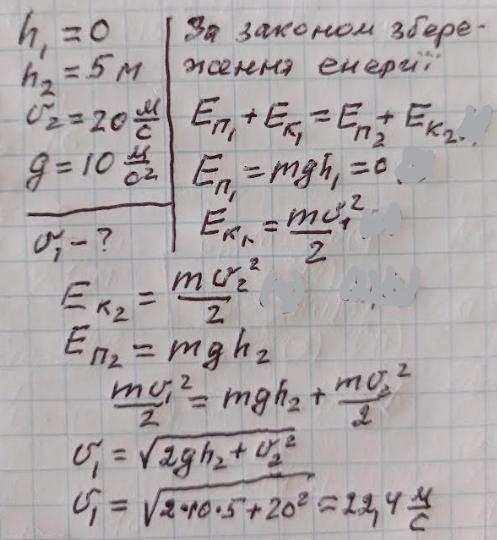 h₁ = 0
h₂ = 5 м
υ₂ = 20 м/с
g = 10 м/с²
υ₁ - ?
За законом збере-
ження енергії:
Eп₁ + Eк₁ = Eп₂ + Eк₂
Eп₁ = mgh₁ = 0
Eк₁ = mυ₁²/2
Eк₂ = mυ₂²/2
Eп₂ = mgh₂
mυ₁²/2 = mgh₂ + mυ₂²/2
υ₁ = √(2gh₂ + υ₂²)
υ₁ = √(2·10·5 + 20²) = 22,4 м/с